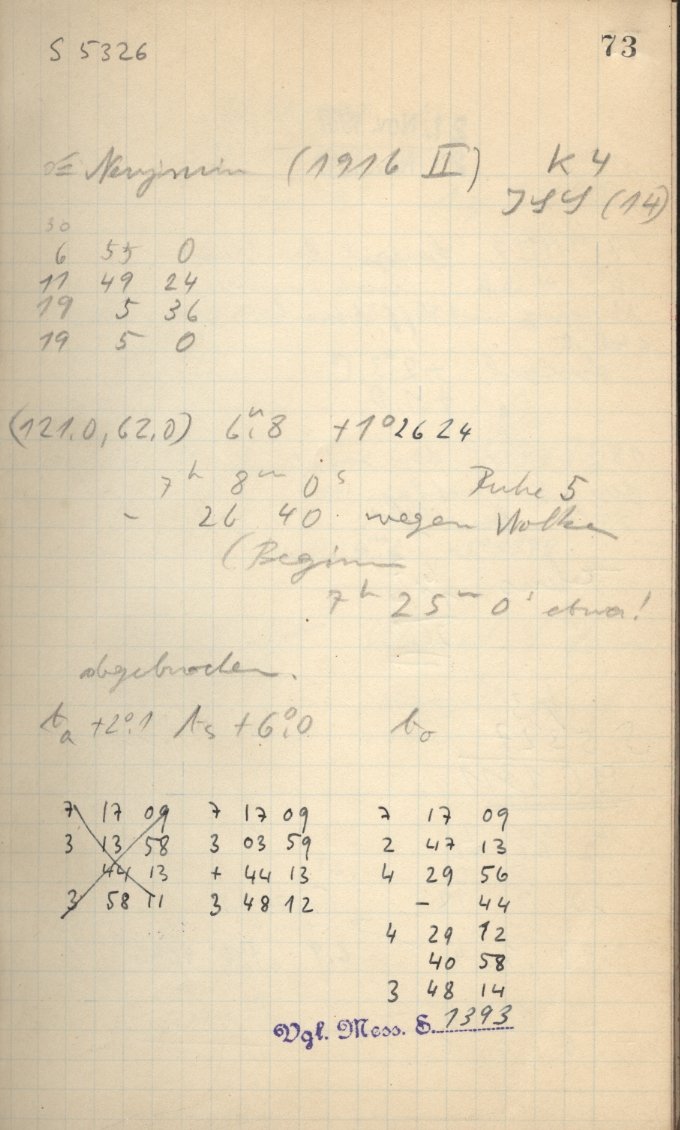 S 5326 73
Neujmin (1916 II) K 4
(14)
30
6 55 0
11 49 24
19 5 36
19 5 0
(121.0, 62.0) 6.8 +1° 26 24
7h 8m 0s Ruhe 5
- 26 40 wegen Wolken
(Beginn
7h 25m 0s etwa!
abgebrochen.
ta +2°.1 ts +6°.0 to
7 17 09 7 17 09 7 17 09
3 13 58 3 03 59 2 47 13
44 13 + 44 13 4 29 56
3 58 11 3 48 12 - 44
4 29 12
40 58
3 48 14
Vgl. Mess. S. 1393